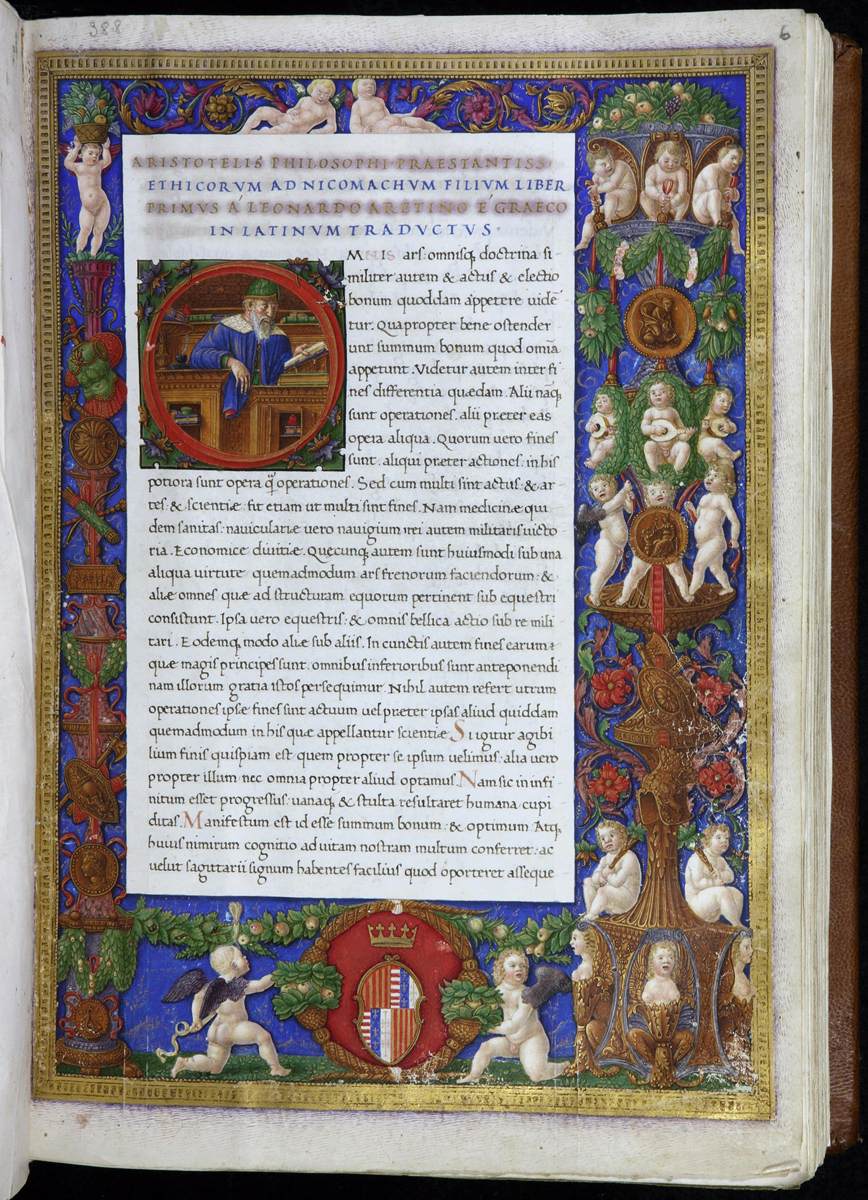 388
6
ARISTOTELIS PHILOSOPHI PRAESTANTISS
ETHICORVM AD NICOMACHVM FILIVM LIBER
PRIMVS Á LEONARDO ARETINO É GRAECO
IN LATINVM TRADVCTVS
MNIS ars: omnisq; doctrina si-
militer autem & actus & electio
bonum quoddam appetere uidē
tur. Quapropter bene ostender
unt summum bonum quod omīa
appetunt. Videtur autem inter fi
nes differentia quædam. Alii nāq;
sunt operationes. alii præter eas
opera aliqua. Quorum uero fines
sunt. aliqui præter actiones: in his
potiora sunt opera q̄ operationes. Sed cum multi sint actus & ar-
tes & scientiæ: fit etiam ut multi sint fines. Nam medicinæ qui
dem sanitas: nauiculariæ uero nauigium: rei autem militaris uicto
ria. Economice diuitiæ. Quecunq; autem sunt huiusmodi sub una
aliqua uirtute quemadmodum ars frenorum faciendorum: &
aliæ omnes quæ ad structuram equorum pertinent sub equestri
consistunt. Ipsa uero equestris: & omnis bellica actio sub re mili
tari. Eodemq; modo aliæ sub aliis. In cunctis autem fines earum:
quæ magis principes sunt: omnibus inferioribus sunt anteponendi
nam illorum gratia istos persequimur. Nihil autem refert utrum
operationes ipsæ fines sint actuum uel præter ipsas aliud quiddam
quemadmodum in his quæ appellantur scientiæ. Si igitur agibi
lium finis quispiam est quem propter se ipsum uelimus: alia uero
propter illum: nec omnia propter aliud optamus. Nam sic in infi-
nitum esset progressus: uanaq; & stulta resultaret humana cupi
ditas. Manifestum est id esse summum bonum: & optimum. Atq;
huius nimirum cognitio ad uitam nostram multum conferret: ac
uelut sagittarii signum habentes facilius quod oporteret asseque